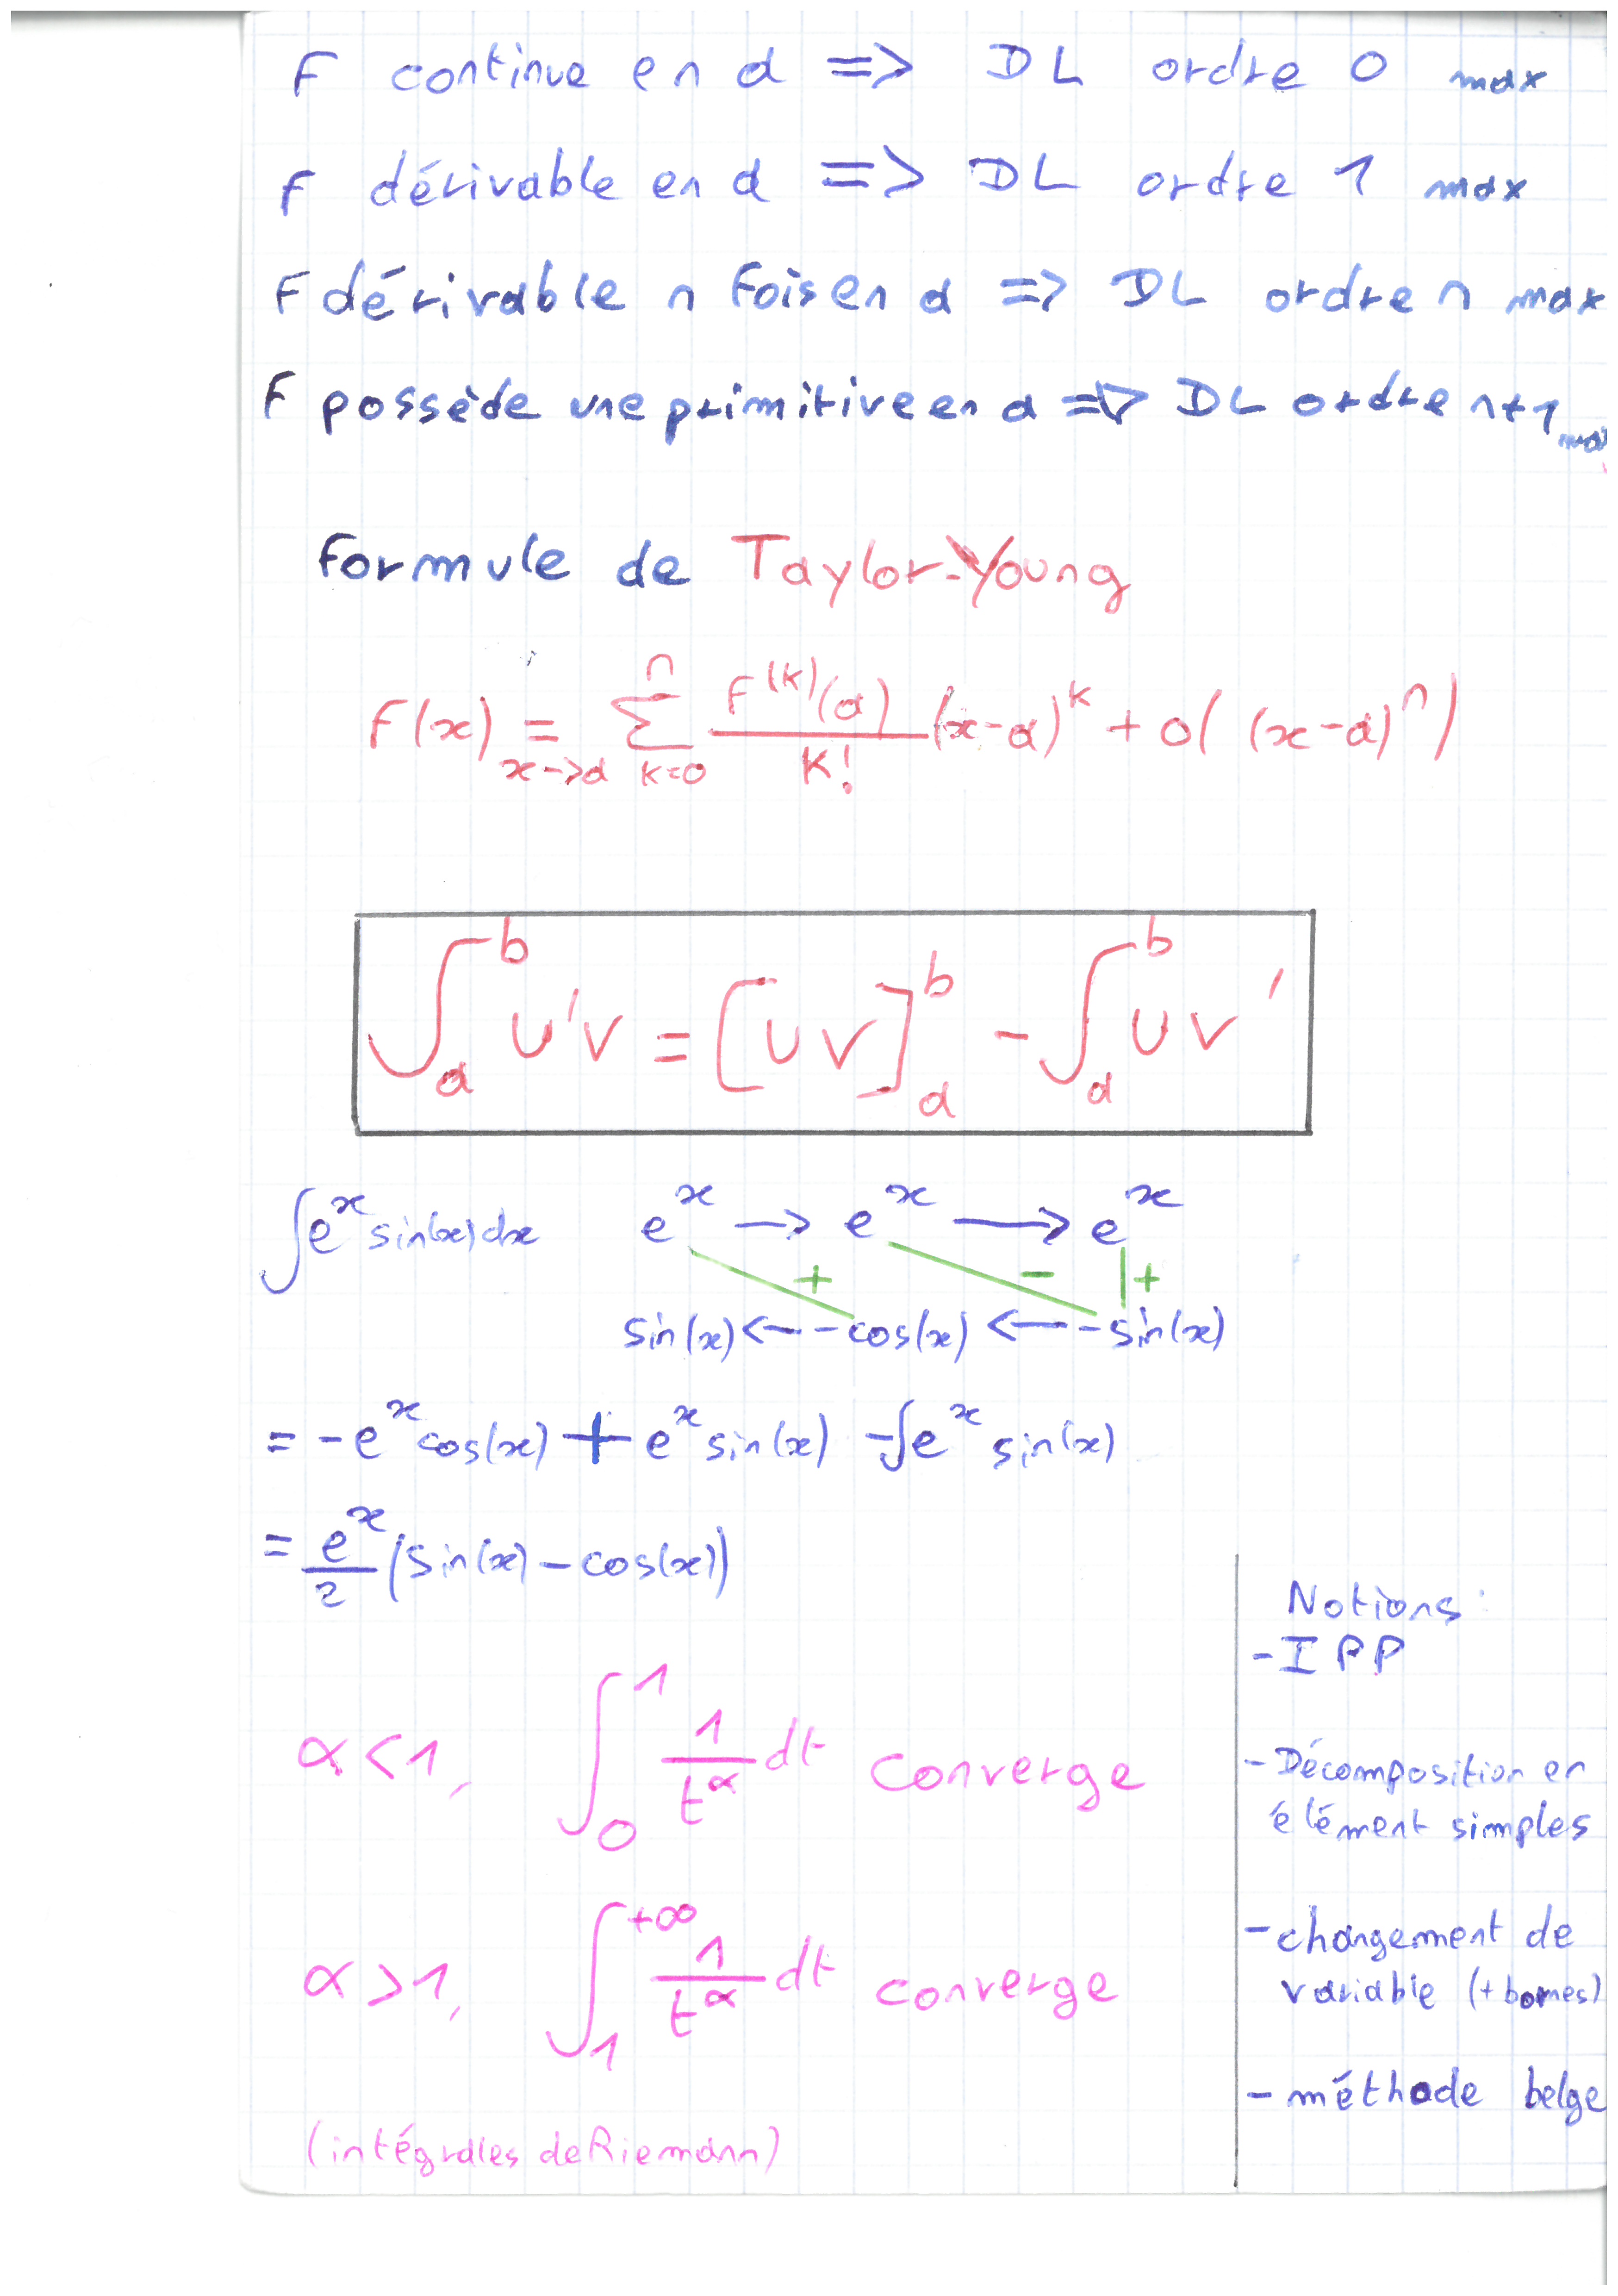 F continue en a => DL ordre 0 max
F dérivable en a => DL ordre 1 max
F dérivable n fois en a => DL ordre n max
F possède une primitive en a => DL ordre n+1 max
Formule de Taylor-Young
F(x) = ∑ F^(k)(a) / K! (x-a)^k + o((x-a)^n)
x->a k=0 n
∫_a^b u'v = [uv]_a^b - ∫_a^b uv'
∫e^x sin(x)dx e^x -> e^x -> e^x
+ - |+
sin(x) <- -cos(x) <- -sin(x)
= -e^x cos(x) + e^x sin(x) -∫e^x sin(x)
= e^x/2 (sin(x) - cos(x))
α<1, ∫_0^1 1/t^α dt converge
α>1, ∫_1^+∞ 1/t^α dt converge
(intégrales de Riemann)
Notions:
- IPP
- Décomposition en
élément simples
- changement de
variable (+bornes)
- méthode belge